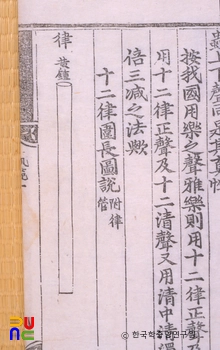 按我國用樂之聲雅樂則用十二律正聲及
用十二律正聲及十二清聲又用清中清
倍三减之法歟
十二律圍長圖說 附律管
律 黃鐘
ⓒ 한국학중앙연구원